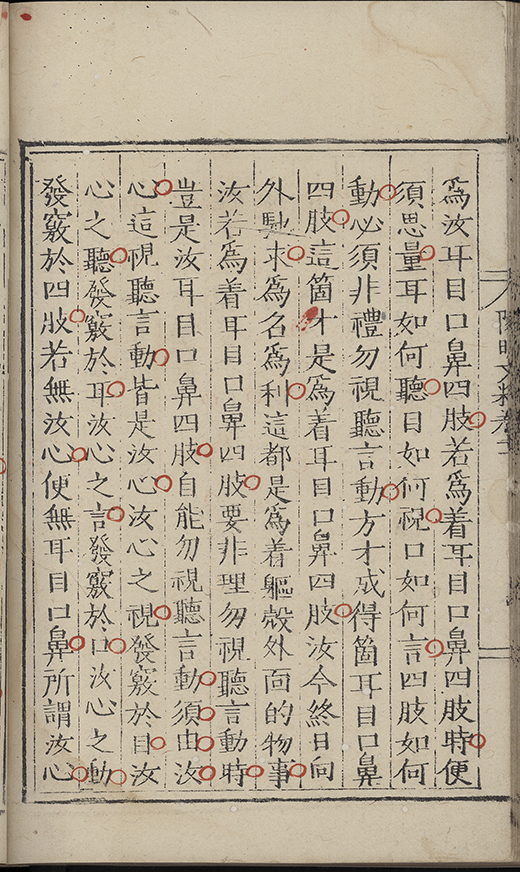 爲汝耳目口鼻四肢若爲着耳目口鼻四肢時便
須思量耳如何聽目如何視口如何言四肢如何
動必須非禮勿視聽言動方才成得箇耳目口鼻
四肢這箇才是爲着耳目口鼻四肢汝今終日向
外馳求爲名爲利這都是爲着軀殼外面的物事
汝若爲着耳目口鼻四肢要非理勿視聽言動時
豈是汝耳目口鼻四肢自能勿視聽言動須由汝
心這視聽言動皆是汝心汝心之視發竅於目汝
心之聽發竅於耳汝心之言發竅於口汝心之動
發竅於四肢若無汝心便無耳目口鼻所謂汝心
陽明文粹卷十